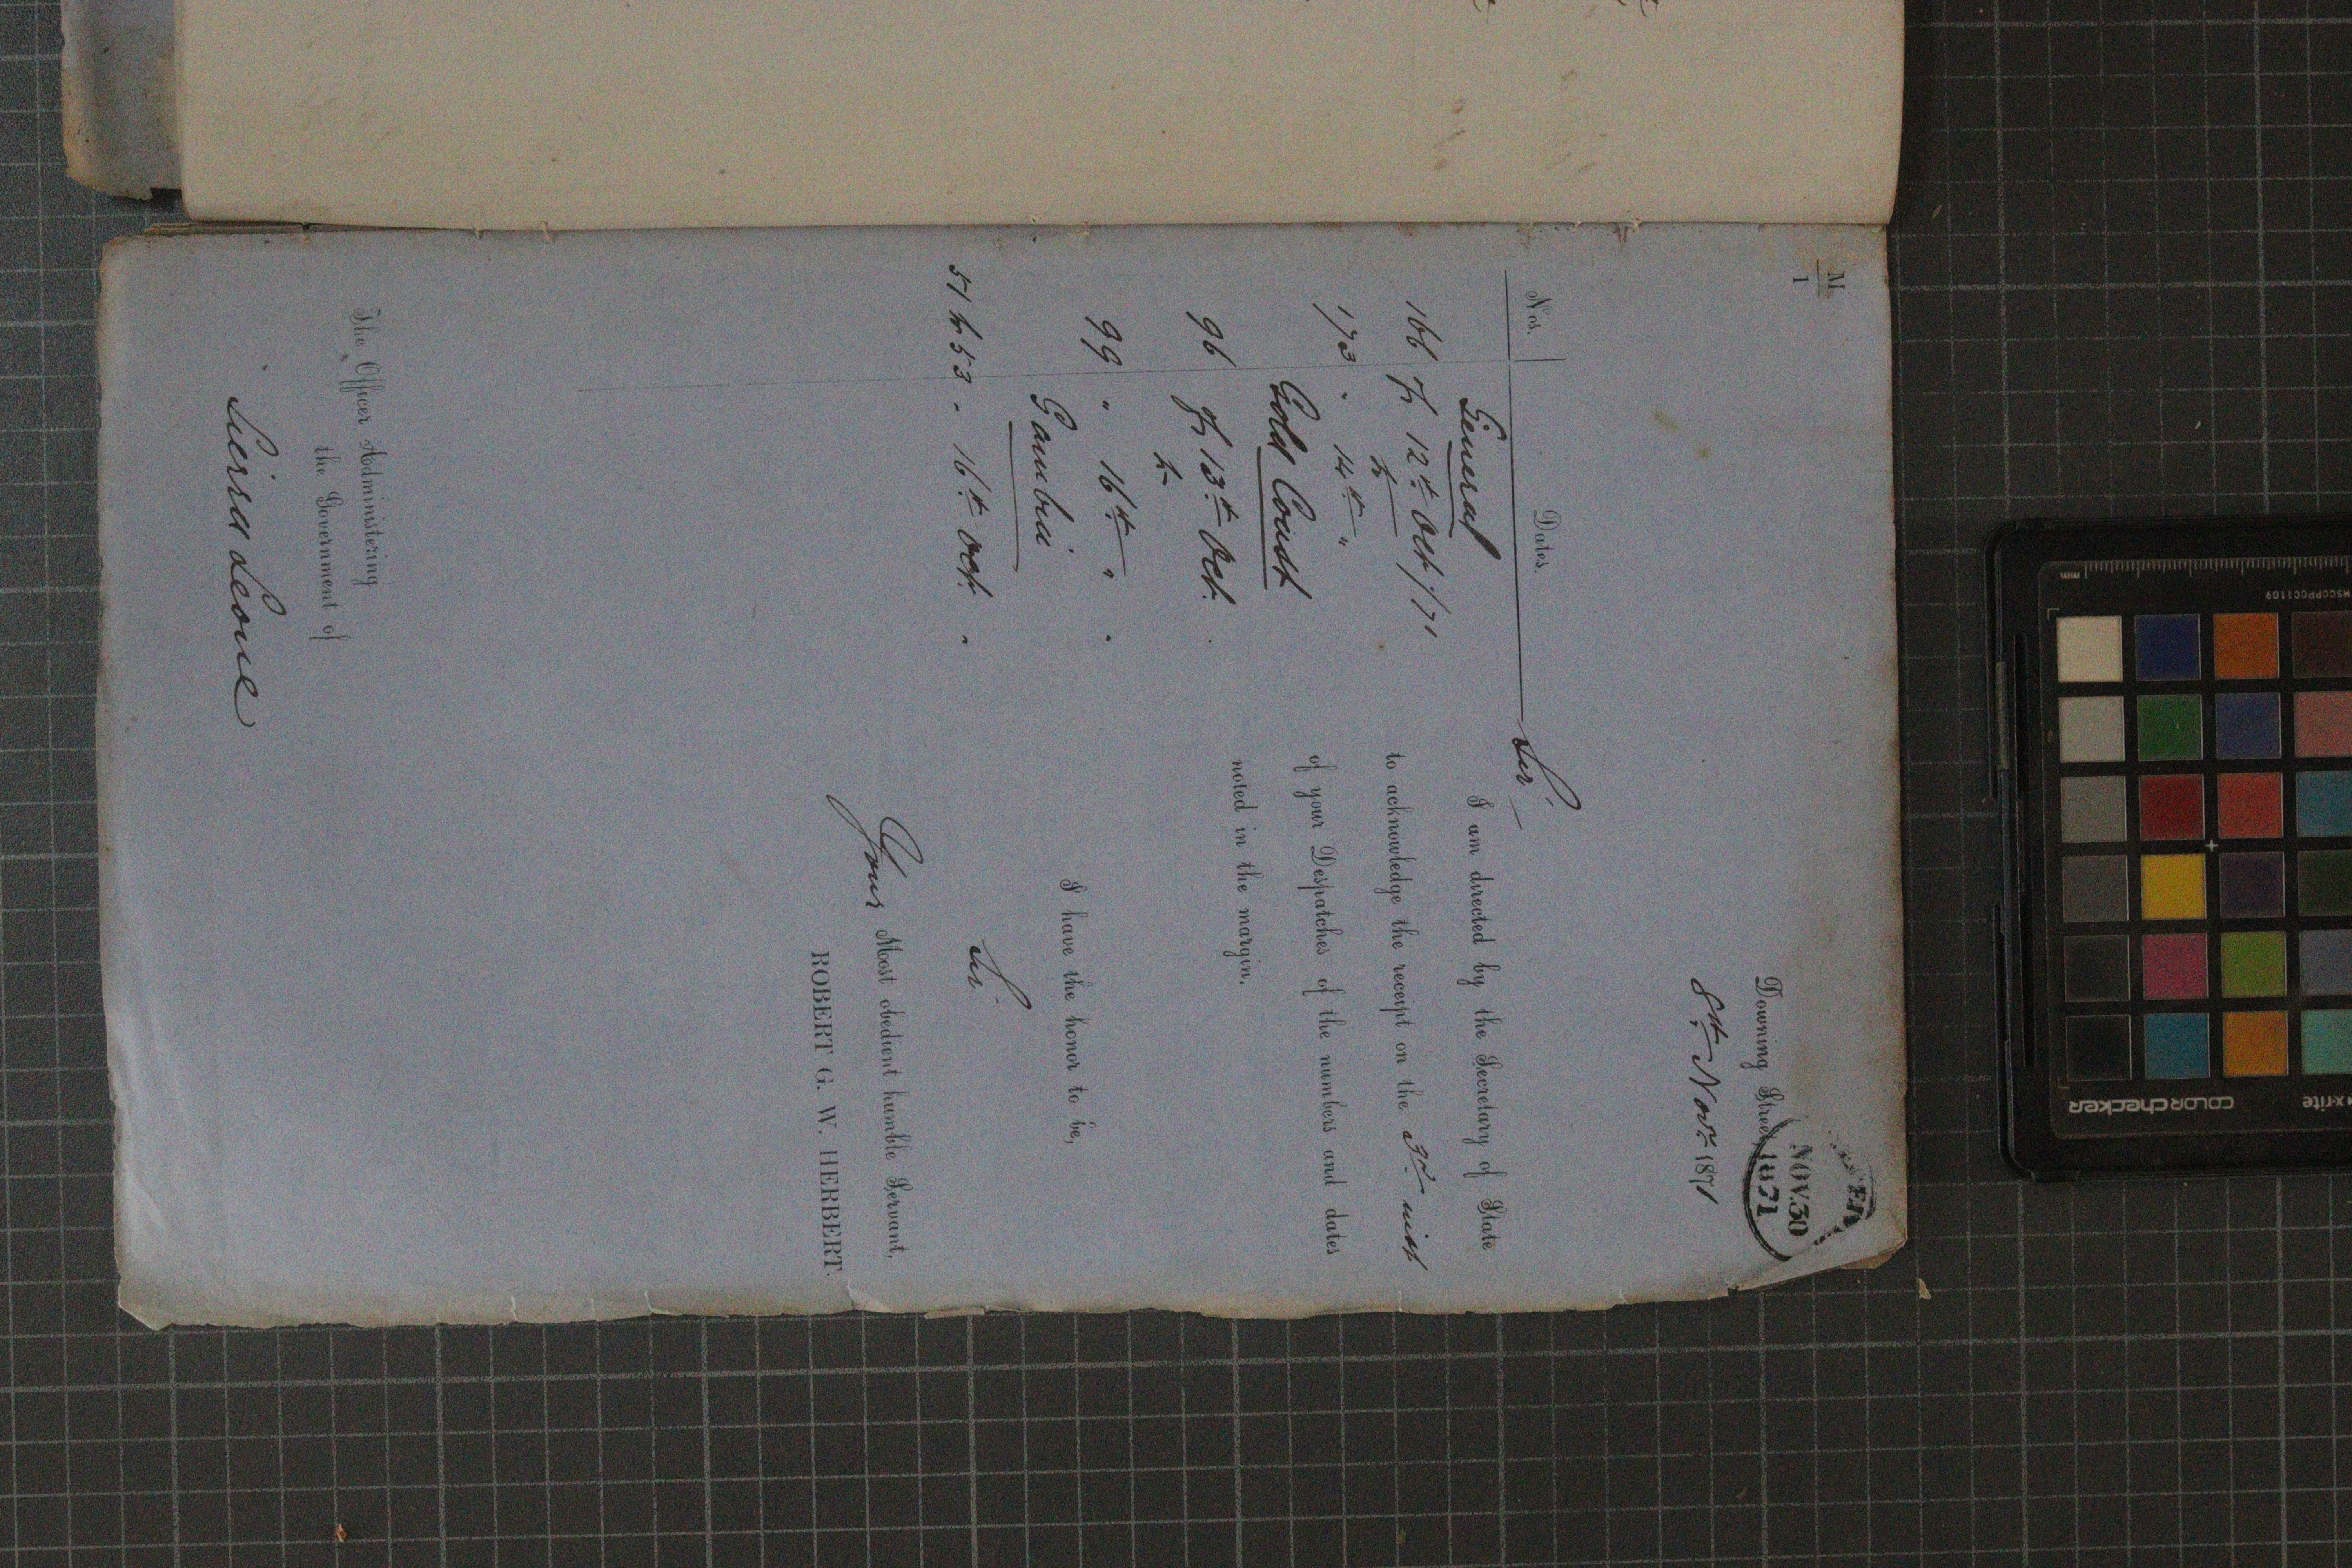 M
1
NOV. 30
1871
Downing Street,
8th Novr. 1871
Nos. Dates.
Sir,
General
166 of 12th Oct./71
to
173 " 14th "
Gold Coast
96 of 13th Oct. "
to
99 " 16th " "
Gambia
51 to 53 " 16th Oct. "
I am directed by the Secretary of State
to acknowledge the receipt on the 3rd inst
of your Despatches of the numbers and dates
noted in the margin.
I have the honor to be,
Sir
Your Most obedient humble Servant,
ROBERT G. W. HERBERT.
The Officer Administering
the Government of
Sierra Leone
mm
MSCCPPCC1109
x-rite
colorchecker